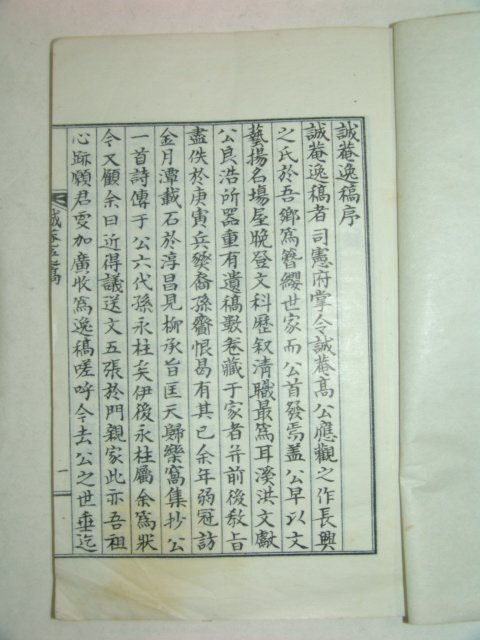 誠菴逸稿序
誠菴逸稿者司憲府掌令誠菴高公應觀之作長興
之氏於吾鄉爲簪纓世家而公首發焉盖公早以文
藝揚名場屋晩登文科歷敘清職最爲耳溪洪文獻
公良浩所器重有遺稿數卷藏于家者并前後敎旨
盡佚於庚寅兵燹裔孫齎恨曷有其已余年弱冠訪
金月潭載石於淳昌見柳承旨匡天歸樂窩集抄公
一首詩傳于公六代孫永柱矣伊後永柱屬余爲狀
今又顧余曰近得議送文五張於門親家此亦吾祖
心跡願君更加廣收爲逸稿嗟呼今去公之世垂迄
誠菴逸稿
一